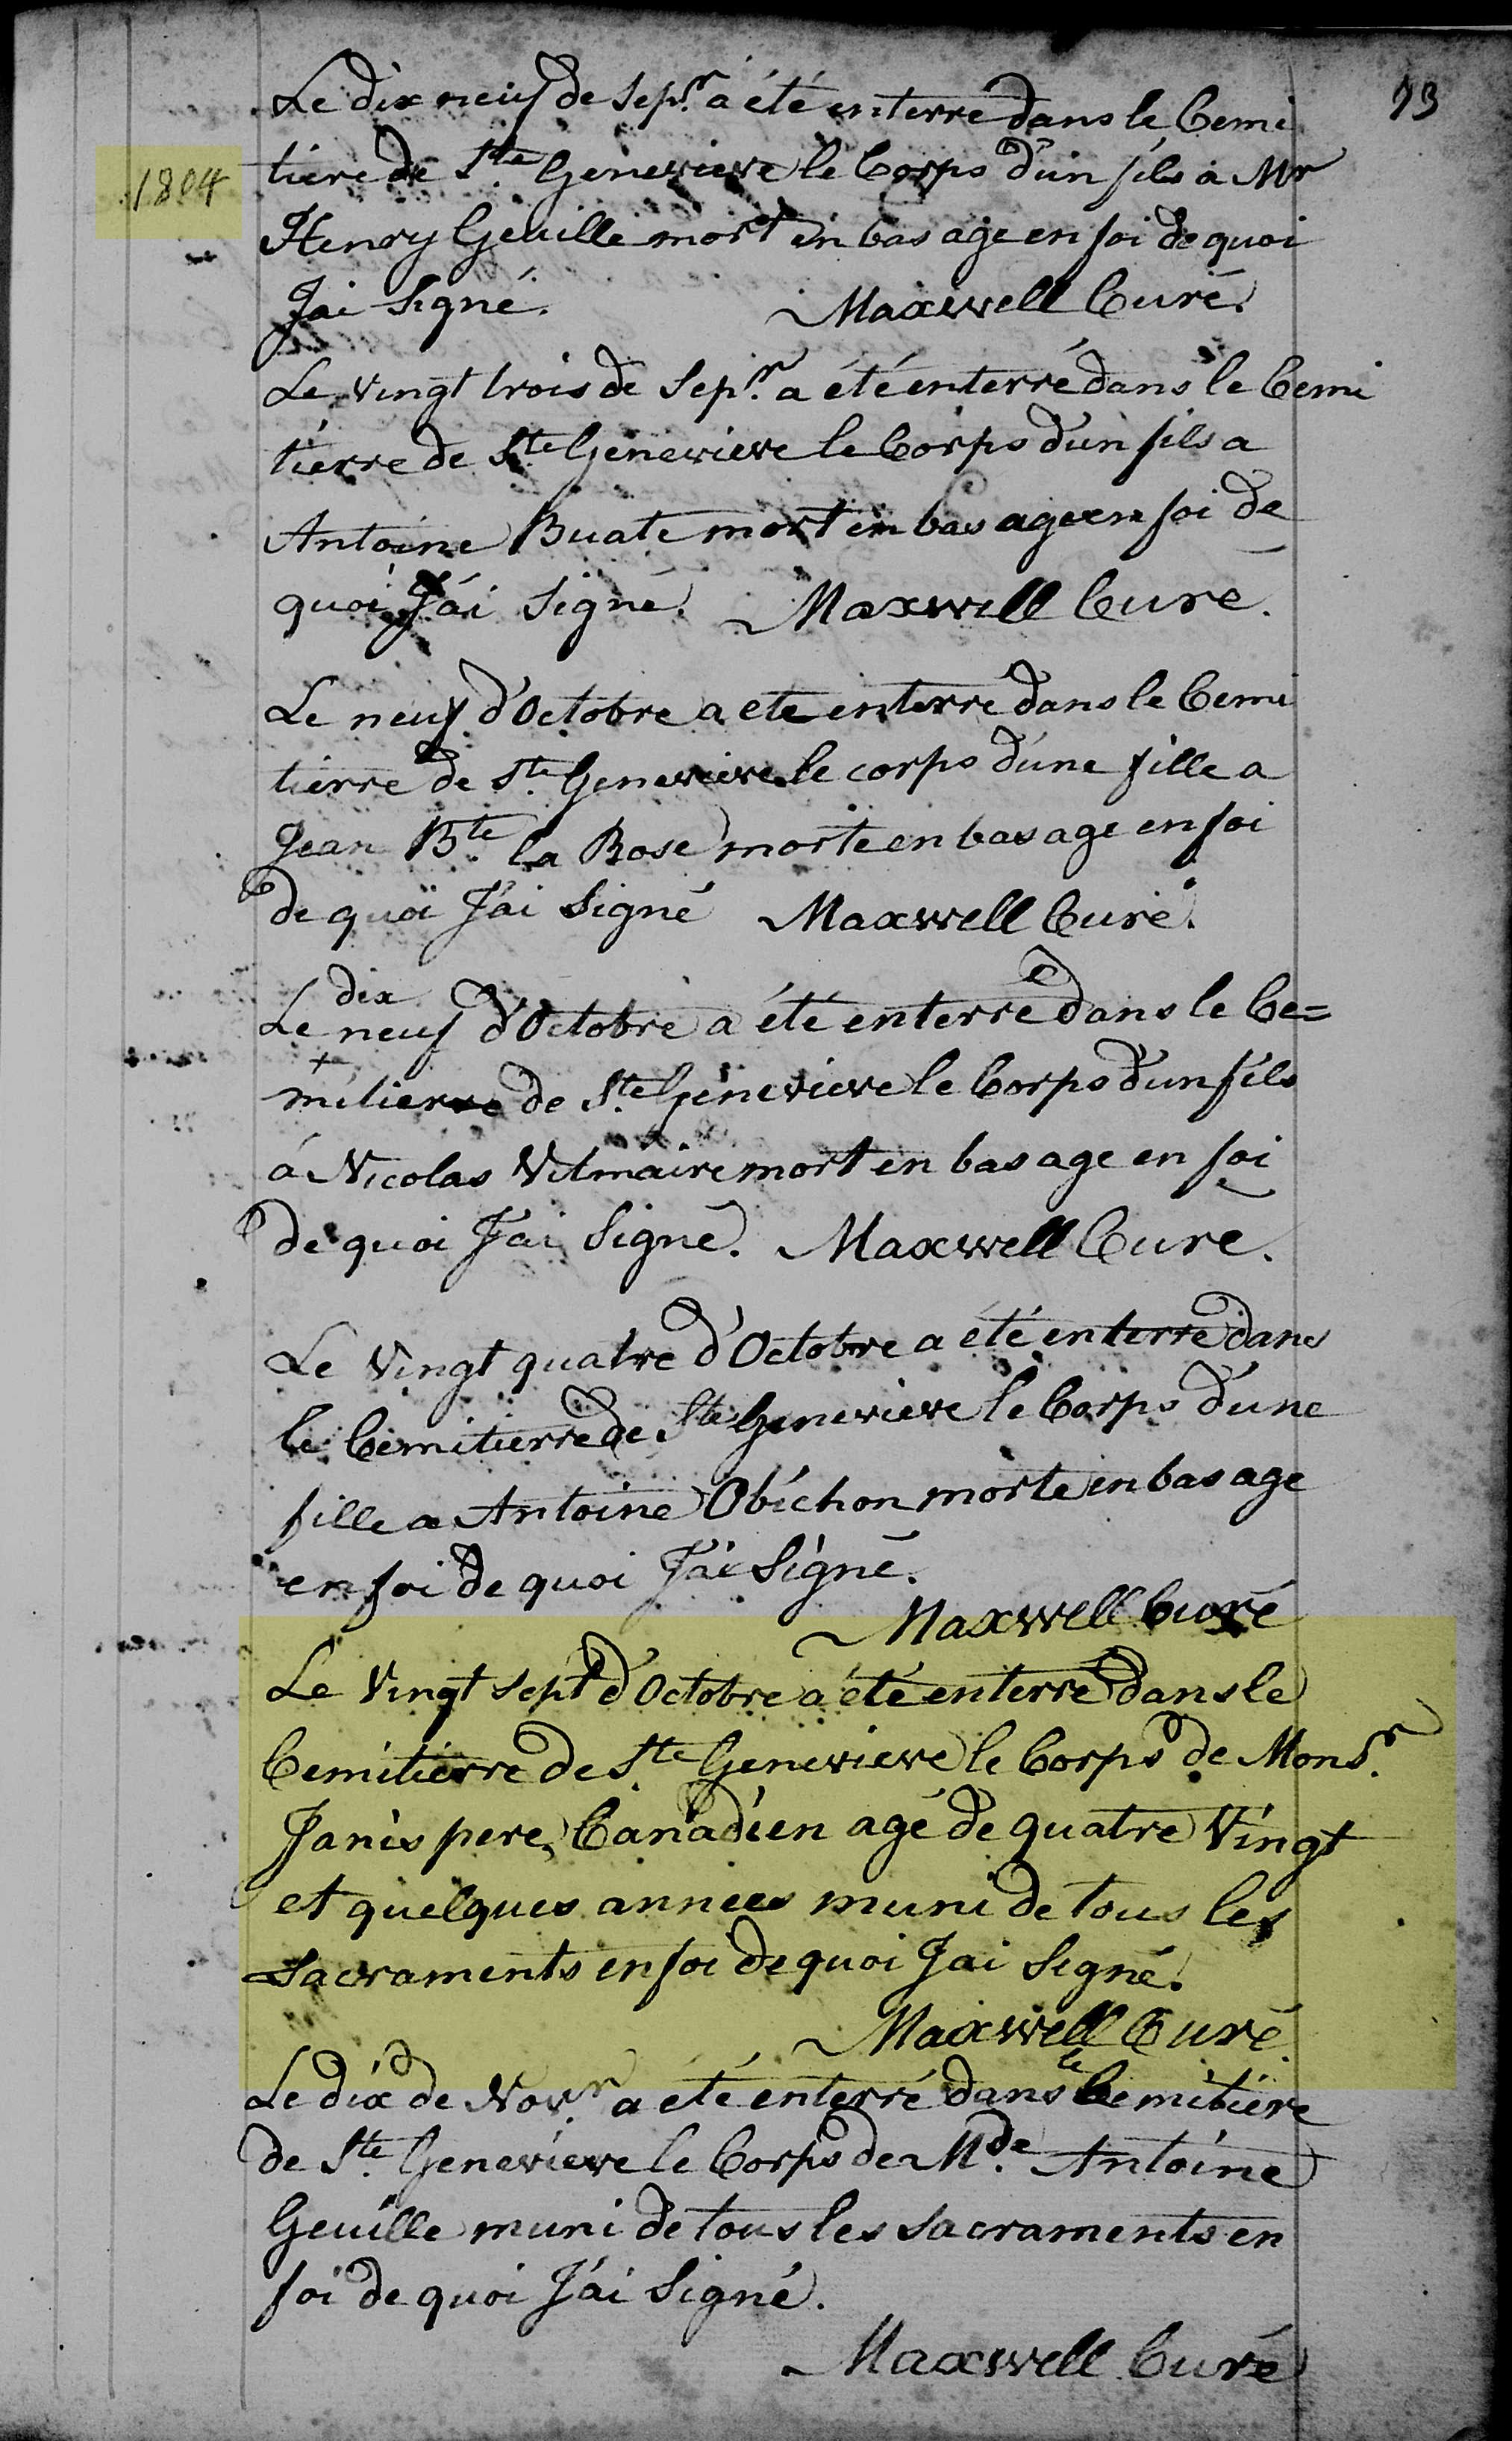 93
Le dix neuf de Sepr. a été enterré dans le Cemi
1804
tiere de Ste. Genevieve le Corps d'un fils a Mr
Henry Geuille mort en bas age en foi de quoi
J'ai Signé. Maxwell Curé.
Le vingt trois de Sepr. a été enterré dans le Cemi
tierre de Ste Genevieve le Corps d'un fils a
Antoine Buate mort en bas age en foi de
quoi J'ai Signé. Maxwell Curé.
Le neuf d'Octobre a eté enterré dans le Cemi
tierre de Ste. Genevieve le corps d'une fille a
Jean Bte. la Rose morte en bas age en foi
de quoi J'ai Signé Maxwell Curé.
dix
Le neuf d'Octobre a été enterré dans le Ce=
mitierre de Ste. Genevieve le Corps d'un fils
á Nicolas Vilmaire mort en bas age en foi
de quoi J'ai Signé. Maxwell Curé.
Le Vingt quatre d'Octobre a été enterré dans
le Cemitierre de Ste Genevieve le Corps d'une
fille a Antoine Obichon morte en bas age
en foi de quoi J'ai Signé.
Maxwell Curé
Le Vingt sept d'Octobre a été enterré dans le
Cemitierre de Ste Genevieve le Corps de Monsr.
Janis pere, Canadien agé de quatre Vingt
et quelques années muni de tous les
sacraments en foi de quoi J'ai Signé.
Maxwell Curé
Le dix de Novr. a eté enterré dans le Cemitiere
de Ste. Genevieve le Corps de Mde. Antoine
Geuille muni de tous les sacraments en
foi de quoi J'ai Signé.
Maxwell Curé